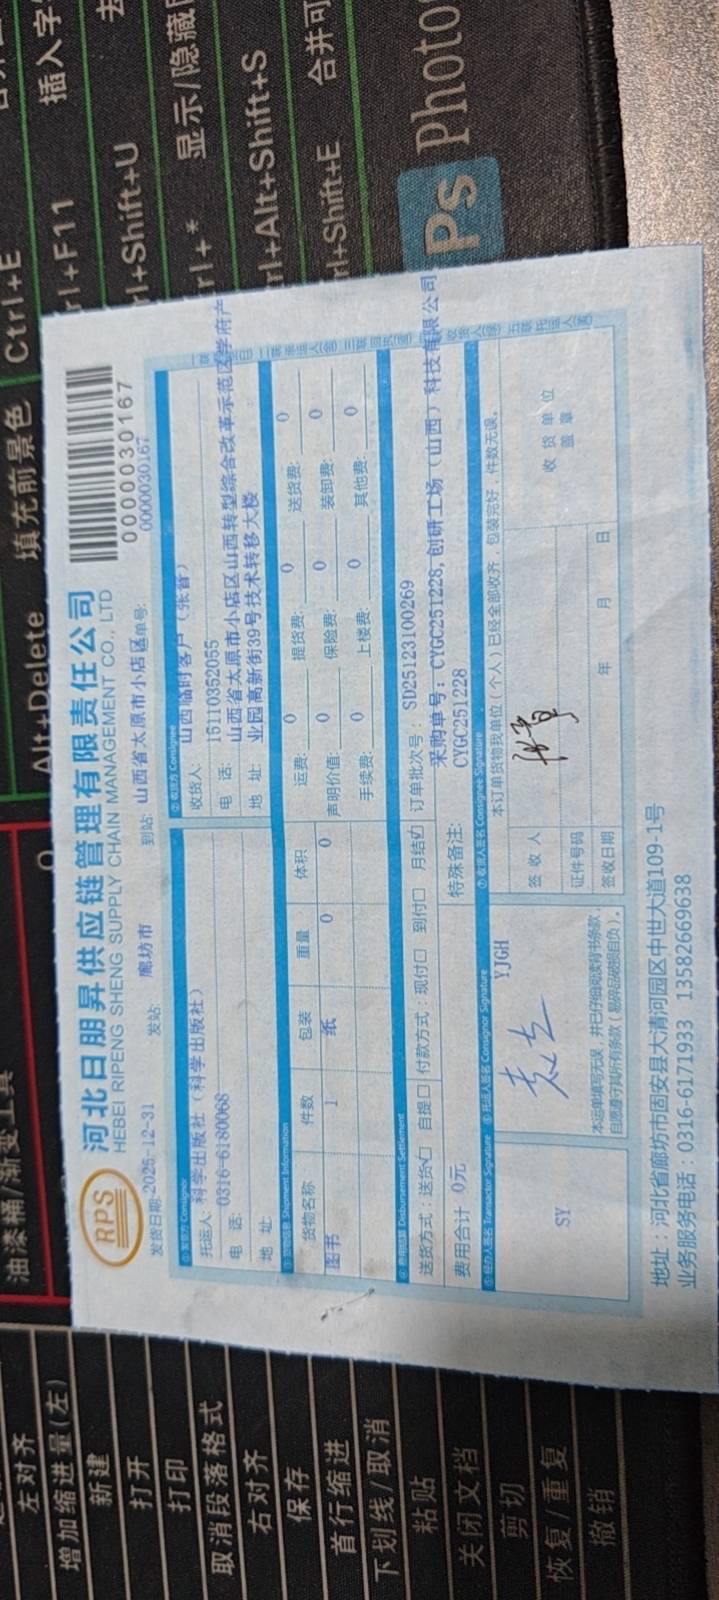 RPS
河北日朋昇供应链管理有限责任公司
HEBEI RIPENG SHENG SUPPLY CHAIN MANAGEMENT CO., LTD
0000000030167
发货日期:2025-12-31 发站: 廊坊市 到站: 山西省太原市小店区 单号: 0000030167
①发货方 Consignor
托运人: 科学出版社（科学出版社）
电 话: 0316-6180068
地 址:
②收货方 Consignee
收货人: 山西临时客户（张晋）
电 话: 15110352055
地 址: 山西省太原市小店区山西转型综合改革示范区学府产
业园高新街39号技术转移大楼
③货物信息 Shipment Information
货物名称 件数 包装 重量 体积
图书 1 纸 0 0
运费: 0 提货费: 0 送货费: 0
声明价值: 0 保险费: 0 装卸费: 0
手续费: 0 上楼费: 0 其他费: 0
④费用结算 Disbursement Settlement
送货方式：送货☑ 自提☐ 付款方式：现付☐ 到付☐ 月结☑ 订单批次号： SD25123100269
费用合计 0元
特殊备注: 采购单号：CYGC251228,创研工场（山西）科技有限公司
CYGC251228
⑤经办人签名 Transactor Signature
SY
⑥托运人签名 Consignor Signature
YJGH
本运单填写无误，并已仔细阅读背书条款，
自愿遵守其所有条款（易碎品破损自负）。
⑦收货人签名 Consignee Signature
本订单货物我单位（个人）已经全部收齐，包装完好，件数无误。
签 收 人
证件号码
签收日期 年 月 日
收 货 单 位
盖 章
地址：河北省廊坊市固安县大清河园区中世大道109-1号
业务服务电话：0316-6171933 13582669638
插入字
Ctrl+E
rl+F11
rl+Shift+U
显示/隐藏
rl+*
rl+Alt+Shift+S
合并可
rl+Shift+E
Ps Photo
填充前景色
Alt+Delete
油漆桶/渐变工具
左对齐
增加缩进量(左)
新建
打开
打印
取消段落格式
右对齐
保存
首行缩进
下划线/取消
粘贴
关闭文档
剪切
恢复/重复
撤销